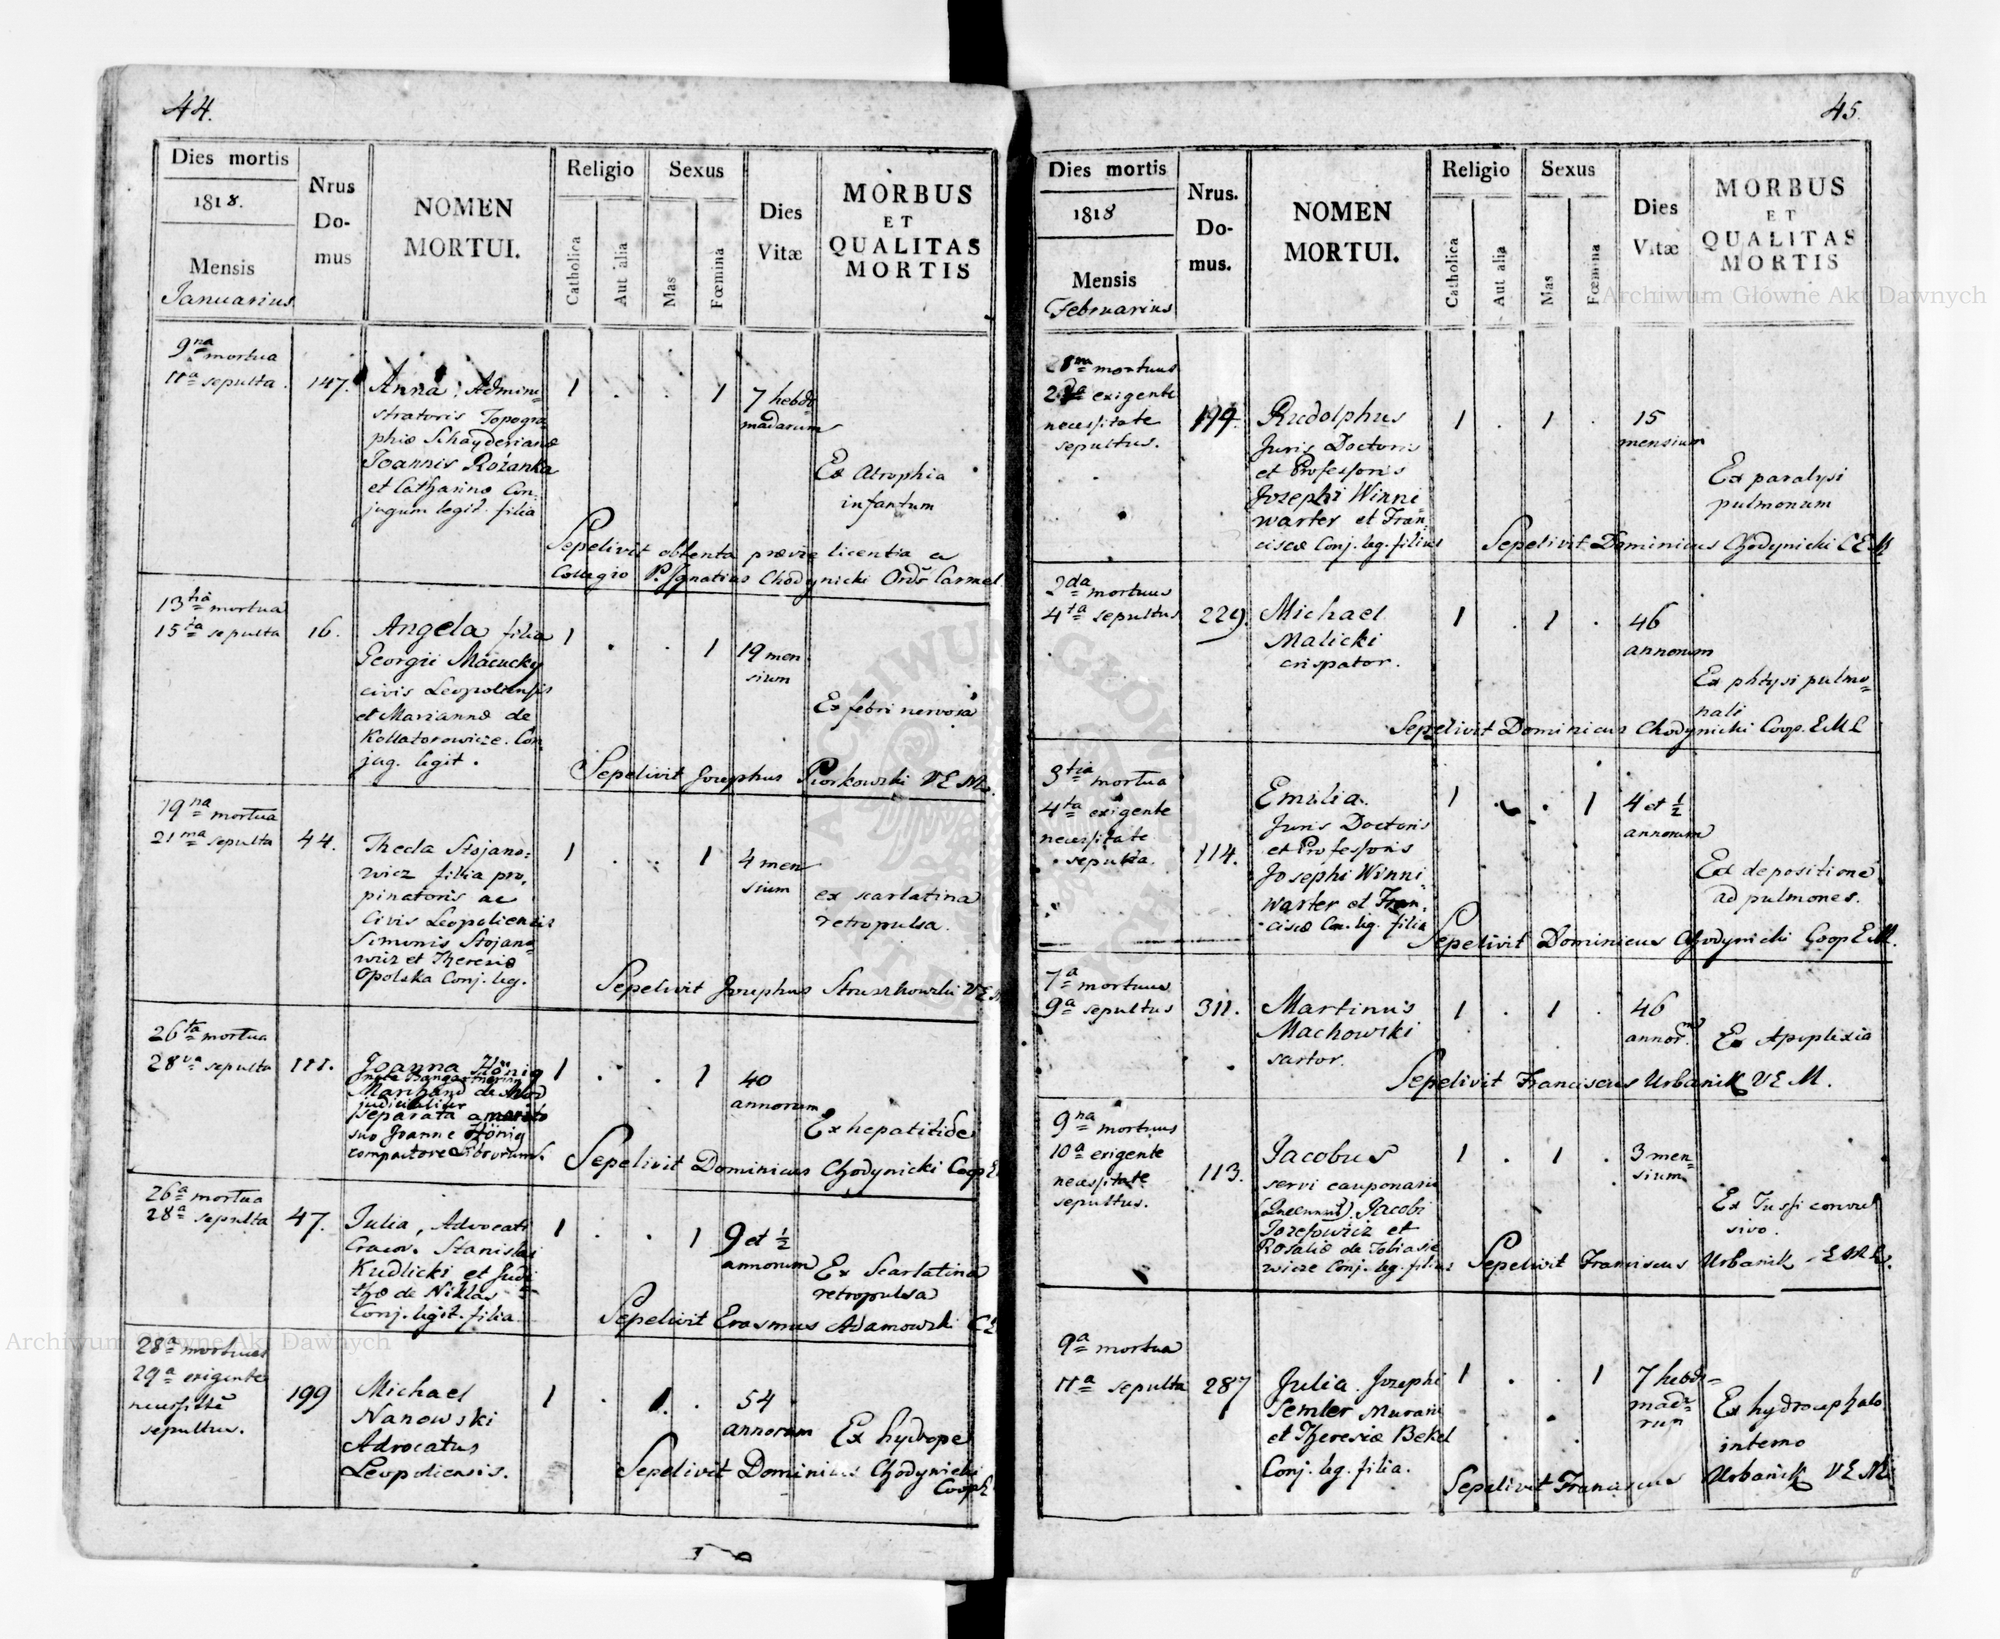 44.
Dies mortis
1818.
Mensis
Januarius
Nrus
Do-
mus
NOMEN
MORTUI.
Religio
Catholica
Aut alia
Sexus
Mas
Fœmina
Dies
Vitæ
MORBUS
ET
QUALITAS
MORTIS
9na mortua
11a sepulta.
147.
Anna Admini-
stratoris Topogra-
phiæ Schayderianæ
Joannis Rożanka
et Catharinæ Con-
jugum legit. filia
1 . . 1
7 hebdo-
madarum
Ex Atrophia
infantum
Sepelivit obtenta prævie licentia a
Collegio P. Ignatius Chodynicki Ords Carmel
13tia mortua
15ta sepulta
16.
Angela filia
Georgii Macucky
civis Leopoliensis
et Mariannæ de
Kollatorowicze Con
jug. legit.
1 . . 1
19 men
sium
Ex febri nervosa
Sepelivit Josephus Piorkowski V E M.
19na mortua
21ma sepulta
44.
Thecla Stojano-
wicz filia pro-
pinatoris ac
Civis Leopoliensis
Simonis Stojano-
wicz et Theresiæ
Opolska Conj. leg.
1 . . 1
4 men
sium
ex scarlatina
retropulsa.
Sepelivit Josephus Struszkowski V E M
26ta mortua
28va sepulta
111.
Joanna Hönig
Marchand de Mod
judicialiter
separata a marito
suo Joanne Hönig
compactore Librorum.
1 . . 1
40
annorum
Ex hepatitide
Sepelivit Dominicus Chodynicki Coop E
26a mortua
28a sepulta
47.
Julia, Advocati
Cracov. Stanislai
Kudlicki et Judi
thæ de Niklas
Conj. legit. filia
1 . . 1
9 et ½
annorum
Ex Scarlatina
retropulsa
Sepelivit Erasmus Adamowski C E
28a mortuus
29a exigente
necessitte
sepultus.
199
Michael
Nanowski
Advocatus
Leopoliensis.
1 . 1 .
54
annorum
Ex hydrope
Sepelivit Dominicus Chodynicki
Coop E
45.
Dies mortis
1818
Mensis
Februarius
Nrus.
Do-
mus.
NOMEN
MORTUI.
Religio
Catholica
Aut alia
Sexus
Mas
Fœmina
Dies
Vitæ
MORBUS
ET
QUALITAS
MORTIS
mortuus
exigente
necessitate
sepultus.
194.
Rudolphus
Juris Doctoris
et Professoris
Josephi Winni-
warter et Fran-
ciscæ Conj. leg. filius
1 . 1 .
15
mensium
Ex paralysi
pulmonum
Sepelivit Dominicus Chodynicki C E M
2da mortuus
4ta sepultus
229.
Michael
Malicki
crispator.
1 . 1 .
46
annorum
Ex phtysi pulmo-
nali
Sepelivit Dominicus Chodynicki Coop. E M L
3tia mortua
4ta exigente
necessitate
sepulta.
114.
Emilia
Juris Doctoris
et Professoris
Josephi Winni-
warter et Fran-
ciscæ Con. leg. filia
1 . . 1
4 et ½
annorum
Ex depositione
ad pulmones.
Sepelivit Dominicus Chodynicki Coop E M.
7a mortuus
9a sepultus
311.
Martinus
Machowski
sartor.
1 . 1 .
46
annor.
Ex Apoplexia
Sepelivit Franciscus Urbanik V E M.
9na mortuus
10a exigente
necessitate
sepultus.
113.
Jacobus
servi cauponarii
Jacobi
Jozefowicz et
Rosaliæ de Tobiasie
wicze Conj. leg. filius
1 . 1 .
3 men-
sium
Ex Tussi convul
sivo.
Sepelivit Franciscus Urbanik
9a mortua
11a sepulta
287
Julia Josephi
Semler Murarii
et Theresiæ Bekel
Conj. leg. filia.
1 . . 1
7 hebdo-
mada-
rum
Ex hydrocephalo
interno
Sepelivit Franciscus Urbanik V E M
Archiwum Główne Akt Dawnych
Archiwum Główne Akt Dawnych